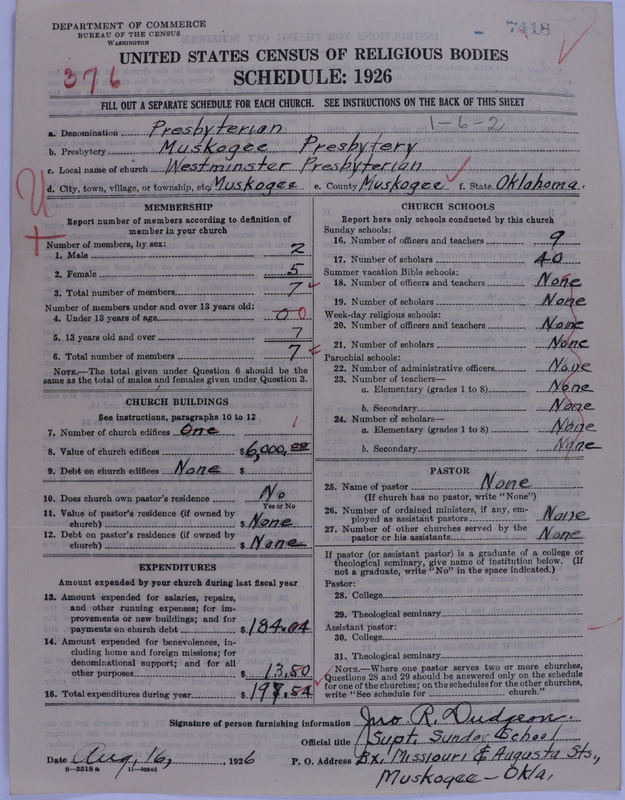 DEPARTMENT OF COMMERCE
BUREAU OF THE CENSUS
WASHINGTON
7418
376
UNITED STATES CENSUS OF RELIGIOUS BODIES
SCHEDULE: 1926
FILL OUT A SEPARATE SCHEDULE FOR EACH CHURCH. SEE INSTRUCTIONS ON THE BACK OF THIS SHEET
1-6-2
a. Denomination Presbyterian
b. Presbytery Muskogee Presbytery
c. Local name of church Westminster Presbyterian
d. City, town, village, or township, etc. Muskogee e. County Muskogee f. State Oklahoma.
MEMBERSHIP
Report number of members according to definition of
member in your church
Number of members, by sex:
1. Male 2
2. Female 5
3. Total number of members 7
Number of members under and over 13 years old:
4. Under 13 years of age 00
5. 13 years old and over 7
6. Total number of members 7
NOTE.—The total given under Question 6 should be
same as the total of males and females given under Question 3.
CHURCH BUILDINGS
See instructions, paragraphs 10 to 12
7. Number of church edifices One 1
8. Value of church edifices $6,000.00
9. Debt on church edifices None $
10. Does church own pastor's residence No
Yes or No
11. Value of pastor's residence (if owned by
church) $ None
12. Debt on pastor's residence (if owned by
church) $ None
EXPENDITURES
Amount expended by your church during last fiscal year
13. Amount expended for salaries, repairs,
and other running expenses; for im-
provements or new buildings; and for
payments on church debt $184.04
14. Amount expended for benevolences, in-
cluding home and foreign missions; for
denominational support; and for all
other purposes $ 13.50
15. Total expenditures during year $197.54
CHURCH SCHOOLS
Report here only schools conducted by this church
Sunday schools:
16. Number of officers and teachers 9
17. Number of scholars 40
Summer vacation Bible schools:
18. Number of officers and teachers None
19. Number of scholars None
Week-day religious schools:
20. Number of officers and teachers None
21. Number of scholars None
Parochial schools:
22. Number of administrative officers None
23. Number of teachers—
a. Elementary (grades 1 to 8) None
b. Secondary None
24. Number of scholars—
a. Elementary (grades 1 to 8) None
b. Secondary None
PASTOR
25. Name of pastor None
(If church has no pastor, write "None")
26. Number of ordained ministers, if any, em-
ployed as assistant pastors None
27. Number of other churches served by the
pastor or his assistants None
If pastor (or assistant pastor) is a graduate of a college or
theological seminary, give name of institution below. (If
not a graduate, write "No" in the space indicated.)
Pastor:
28. College
29. Theological seminary
Assistant pastor:
30. College
31. Theological seminary
NOTE.—Where one pastor serves two or more churches,
Questions 28 and 29 should be answered only on the schedule
for one of the churches; on the schedules for the other churches,
write "See schedule for church."
Signature of person furnishing information Jno R. Dudgeon.
Official title Supt. Sunday School
Date Aug, 16, 1926 P. O. Address Bx, Missouri & Augusta Sts.,
8—5518 a
Muskogee - Okla,